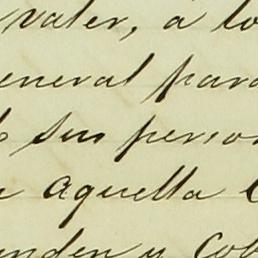 valer, á lo
eneral para
sus person
a aquella C
enden y Cob